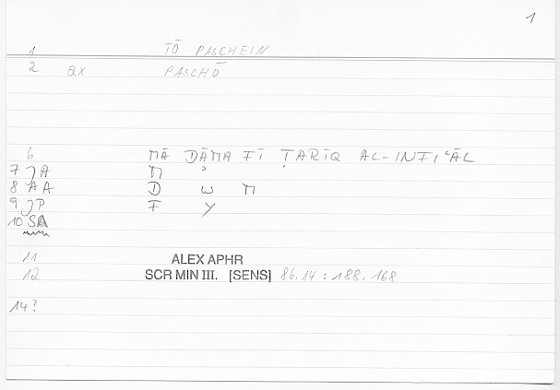 1
1 TŌ PASCHEIN
2 ax PASCHŌ
6 MĀ DĀMA FĪ ṬARĪQ AL-INFIʿĀL
7 JA M ʾ
8 AA D W M
9 JP F Y
10 SA
11 ALEX APHR
12 SCR MIN III. [SENS] 86.14 : 188.168
14?